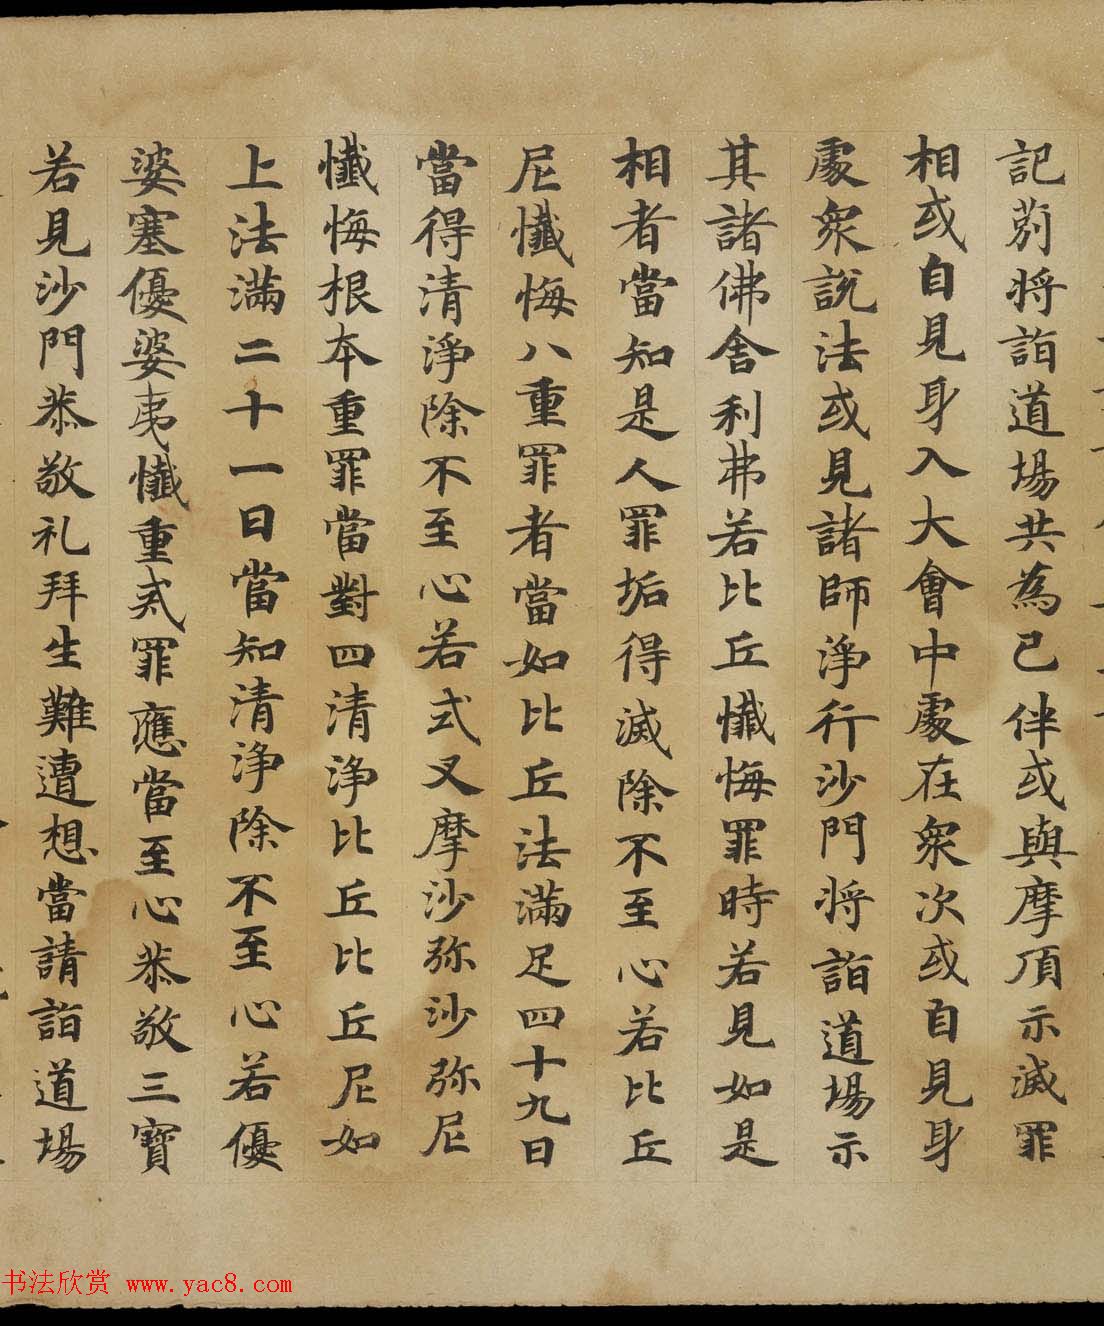 記莂将詣道場共為己伴或與摩頂示滅罪
相或自見身入大會中處在衆次或自見身
處衆說法或見諸師淨行沙門将詣道場示
其諸佛舍利弗若比丘懺悔罪時若見如是
相者當知是人罪垢得滅除不至心若比丘
尼懺悔八重罪者當如比丘法滿足四十九日
當得清淨除不至心若式叉摩沙弥沙弥尼
懺悔根本重罪當對四清浄比丘比丘尼如
上法滿二十一日當知清浄除不至心若優
婆塞優婆夷懺重貳罪應當至心恭敬三寶
若見沙門恭敬礼拜生難遭想當請詣道場
书法欣赏 www.yac8.com